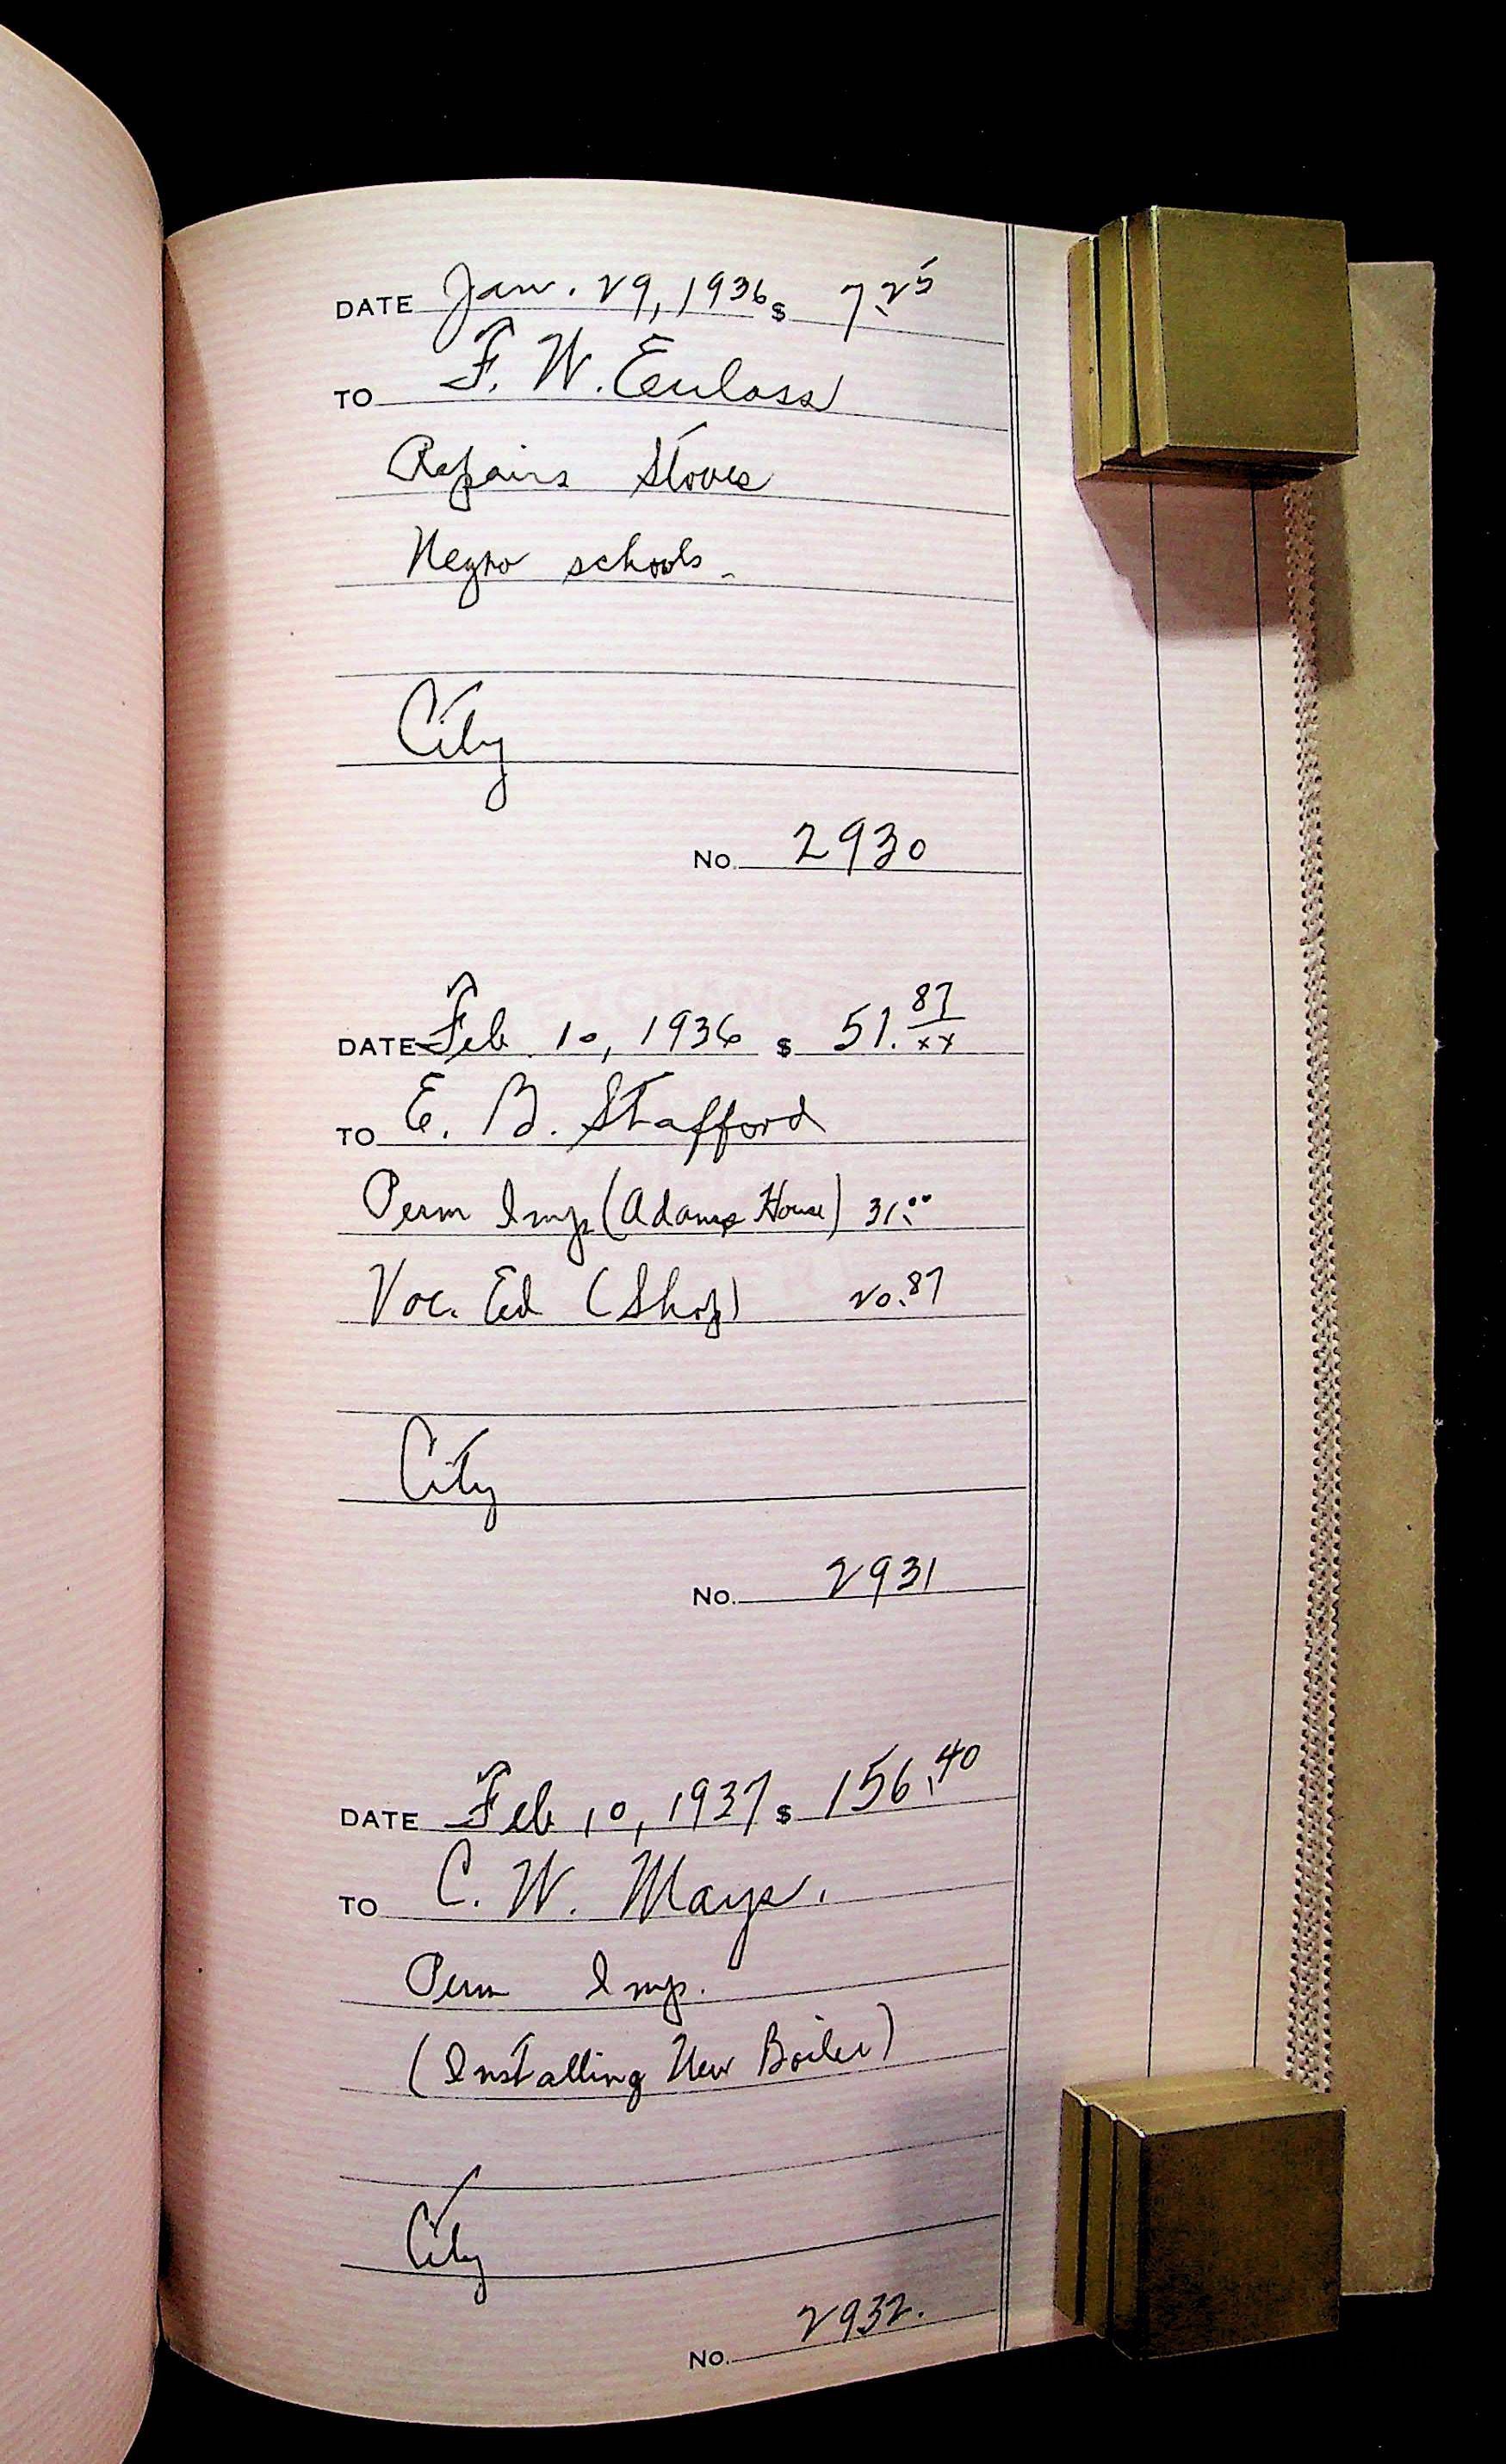 DATE Jan. 29, 1936 $ 7.25
TO F. W. Eulass
Repairs Stoves
Negro schools.
City
No. 2930
DATE Feb 10, 1936 $ 51. 87/xx
TO E. B. Stafford
Perm Imp (Adams House) 31.00
Voc. Ed (Shop) 20.87
City
No. 2931
DATE Feb 10, 1937 $ 156.40
TO C. W. Mays.
Perm Imp.
(Installing New Boiler)
City
No. 2932.